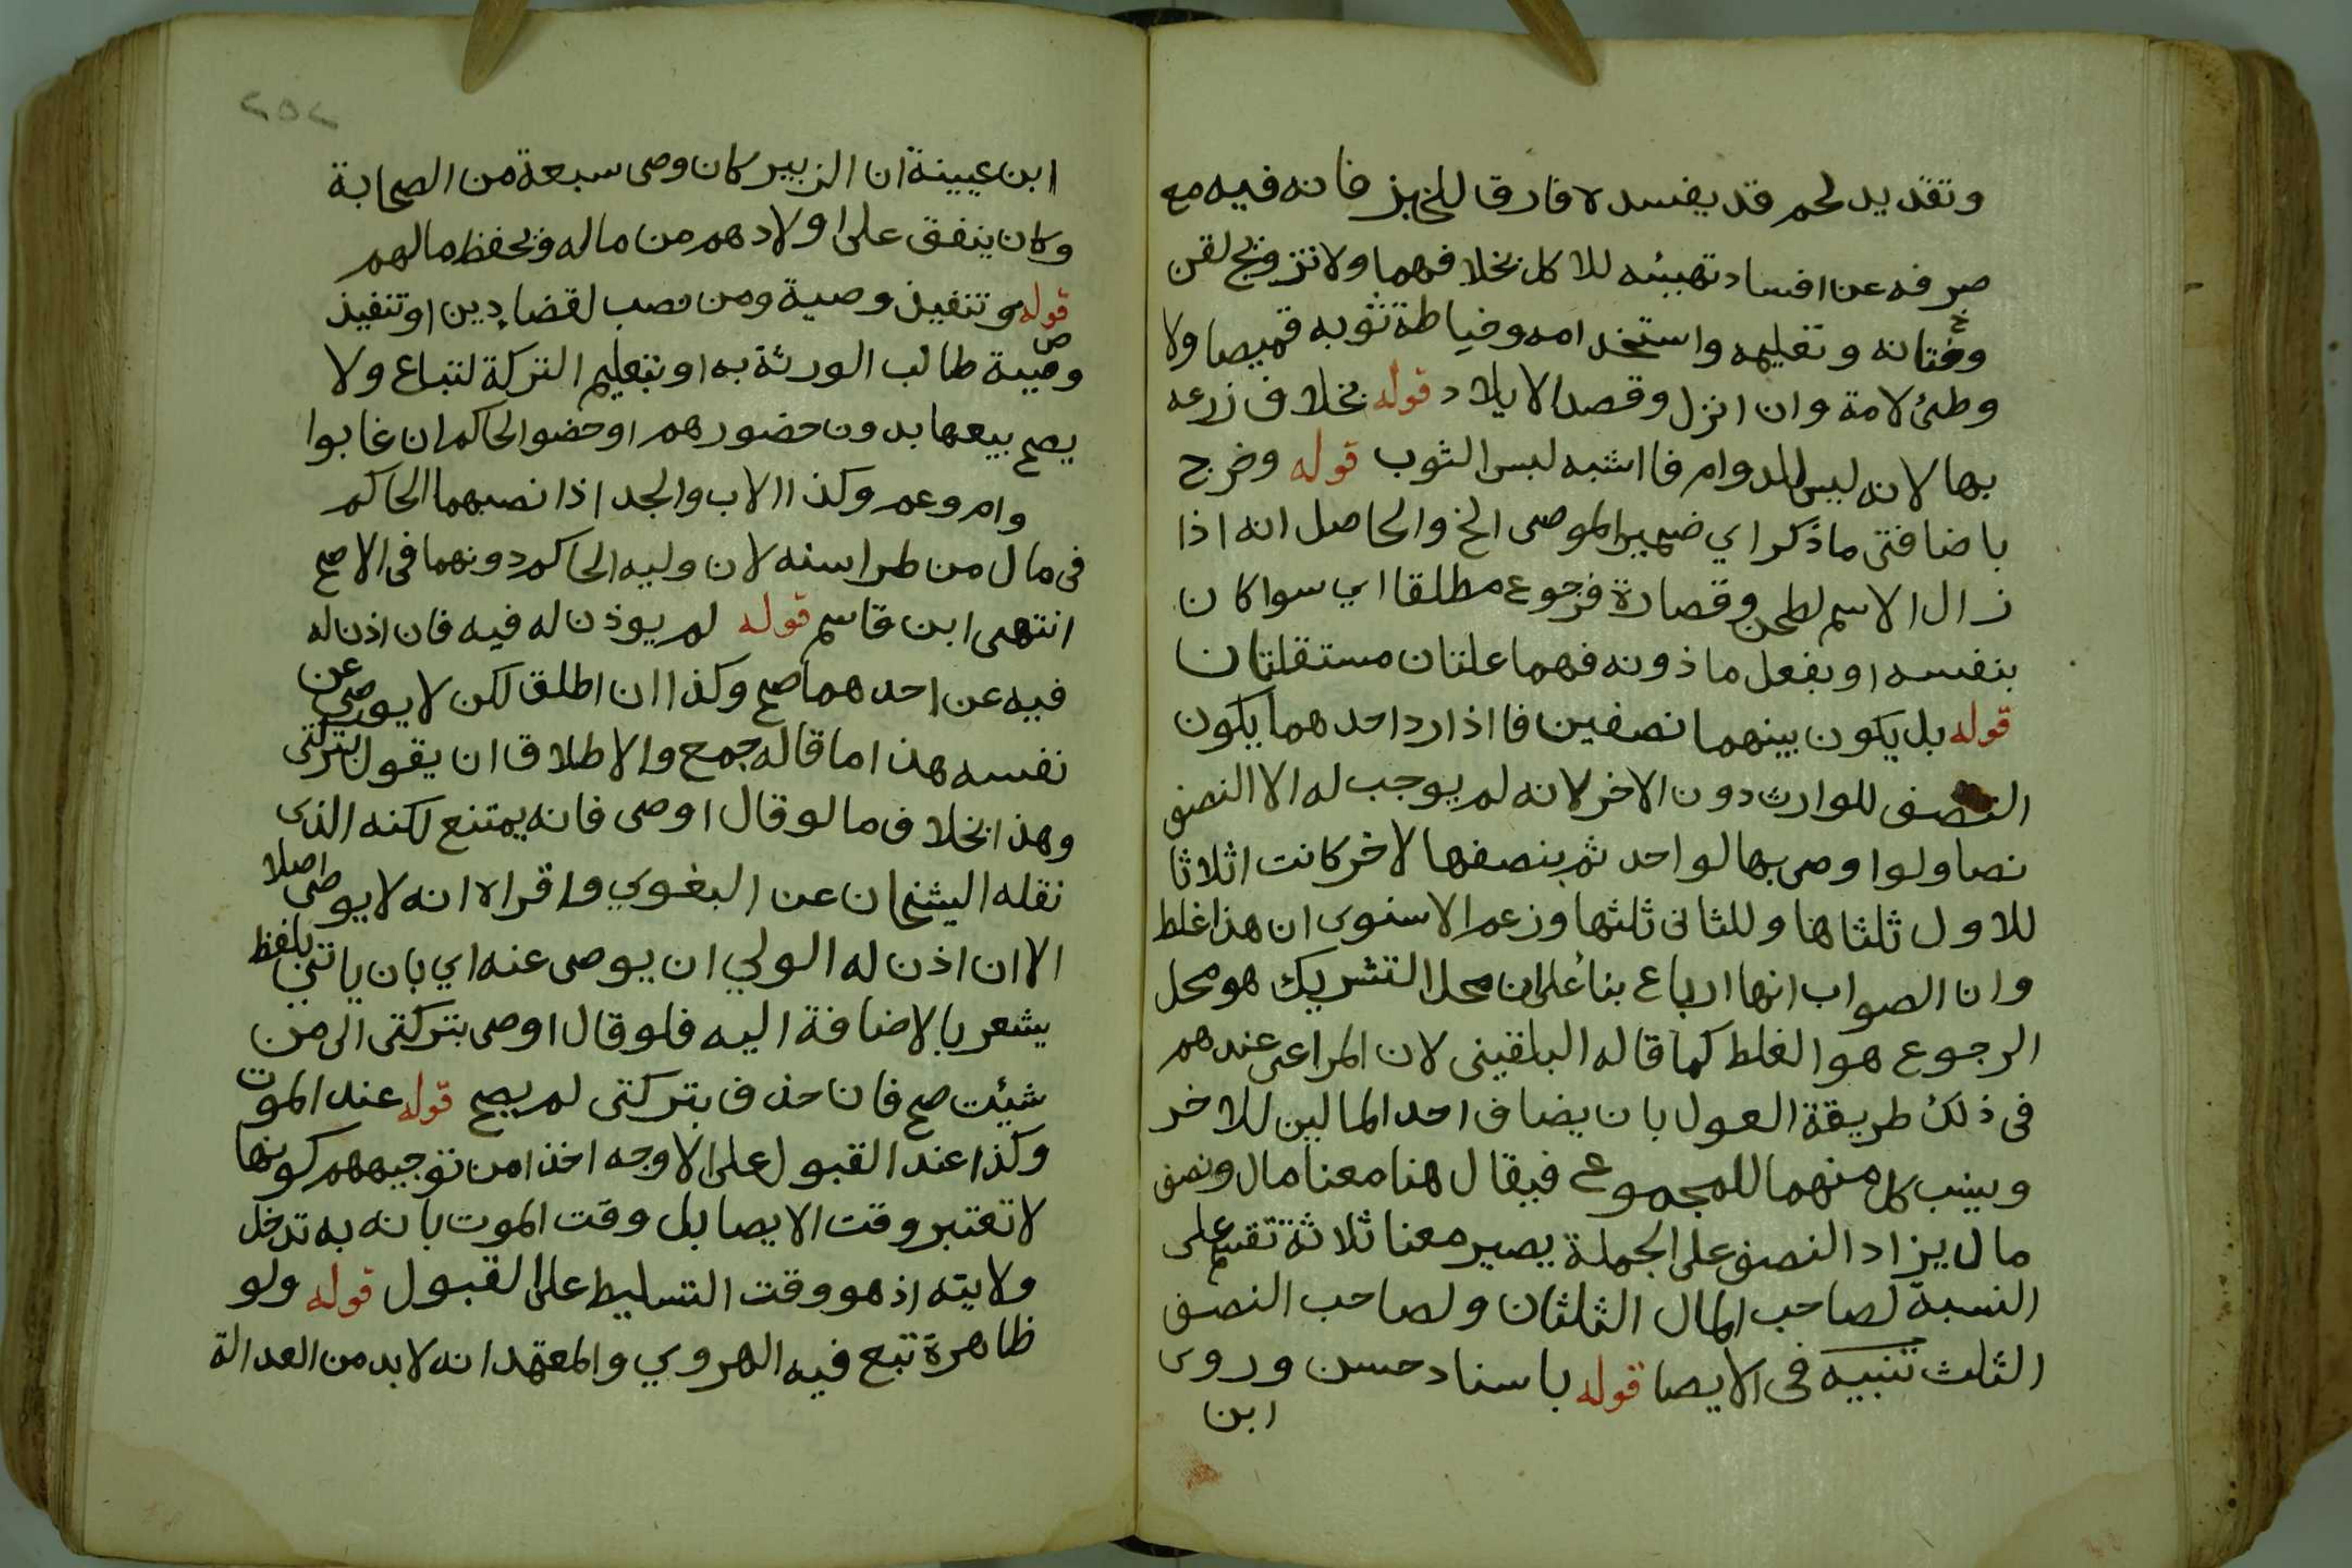 وتقديد لحم قد يفسد لا فارق للخبز فانه فيه مع
صرفه عن افساد تهيئه للاكل بخلافهما ولا تزويج لقن
وختانه وتعليمه واستخدامه وخياطة ثوبه قميصا ولا
وطئ لامة وان انزل وقصد الايلاد قوله بخلاف زرعه
بها لانه ليس للدوام فاشبه لبس الثوب قوله وخرج
باضافتى ما ذكر اي ضمير الموصى الخ والحاصل انه اذا
زال الاسم لطحن وقصارة فرجوع مطلقا اي سوا كان
بنفسه او بفعل ماذونه فهما علتان مستقلتان
قوله بل يكون بينهما نصفين فاذا رد احدهما يكون
النصف للوارث دون الاخر لانه لم يوجب له الا النصف
نصا ولو اوصى بها لواحد ثم بنصفها لاخر كانت اثلاثا
للاول ثلثاها وللثانى ثلثها وزعم الاسنوى ان هذا غلط
وان الصواب انها ارباع بناء على ان محل التشريك هو محل
الرجوع هو الغلط كما قاله البلقينى لان المراعى عندهم
فى ذلك طريقة العول بان يضاف احد المالين للاخر
وينسب كل منهما للمجموع فيقال هنا معنا مال ونصف
مال يزاد النصف على الجملة يصير معنا ثلاثة تقسم على
النسبة لصاحب المال الثلثان ولصاحب النصف
الثلث تنبيه فى الايصا قوله باسناد حسن وروى
ابن
٢٥٢
ابن عيينة ان الزبير كان وصى سبعة من الصحابة
وكان ينفق على اولادهم من ماله ويحفظ مالهم
قوله وتنفيذ وصية ومن نصب لقضاء دين او تنفيذ
وصية طالب الورثة به او بتعليم التركة لتباع ولا
يصح بيعها بدون حضورهم او حضو الحاكم ان غابوا
وام وعم وكذا الاب والجد اذا نصبهما الحاكم
فى مال من طرا سنه لان وليه الحاكم دونهما فى الاصح
انتهى ابن قاسم قوله لم يوذن له فيه فان اذن له
فيه عن احدهما صح وكذا ان اطلق لكن لا يوصى عن
نفسه هذا ما قاله جمع والاطلاق ان يقول بتركتى
وهذا بخلاف ما لو قال اوصى فانه يمتنع لكنه الذى
نقله الشيخان عن البغوي واقراه انه لا يوصى اصلا
الا ان اذن له الولي ان يوصى عنه اي بان ياتى بلفظ
يشعر بالاضافة اليه فلو قال اوصى بتركتى الى من
شيئت صح فان حذف بتركتى لم يصح قوله عند الموت
وكذا عند القبول على الاوجه اخذا من توجيههم كونها
لا تعتبر وقت الايصا بل وقت الموت بانه به تدخل
ولايته اذ هو وقت التسليط على القبول قوله ولو
ظاهرة تبع فيه الهروي والمعتمد انه لا بد من العدالة